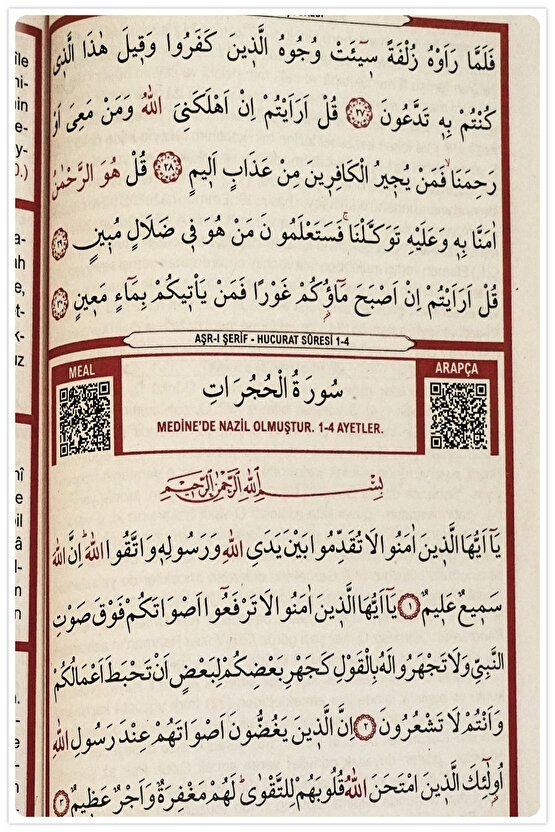 فَلَمَّا رَاَوْهُ زُلْفَةً سٖٓيـَٔتْ وُجُوهُ الَّذٖينَ كَفَرُوا وَقٖيلَ هٰذَا الَّذٖى
كُنْتُمْ بِهٖ تَدَّعُونَ ﴿٢٧﴾ قُلْ اَرَاَيْتُمْ اِنْ اَهْلَكَنِىَ اللّٰهُ وَمَنْ مَعِىَ اَوْ
رَحِمَنَاۙ فَمَنْ يُجٖيرُ الْكَافِرٖينَ مِنْ عَذَابٍ اَلٖيمٍ ﴿٢٨﴾ قُلْ هُوَ الرَّحْمٰنُ
اٰمَنَّا بِهٖ وَعَلَيْهِ تَوَكَّلْنَاۚ فَسَتَعْلَمُونَ مَنْ هُوَ فٖى ضَلَالٍ مُبٖينٍ ﴿٢٩﴾
قُلْ اَرَاَيْتُمْ اِنْ اَصْبَحَ مَٓاؤُ۬كُمْ غَوْرًا فَمَنْ يَاْتٖيكُمْ بِمَٓاءٍ مَعٖينٍ ﴿٣٠﴾
AŞR-I ŞERİF - HUCURAT SÛRESİ 1-4
MEAL
ARAPÇA
سُورَةُ الْحُجُرَاتِ
MEDİNE'DE NAZİL OLMUŞTUR. 1-4 AYETLER.
بِسْمِ اللّٰهِ الرَّحْمٰنِ الرَّحٖيمِ
يَٓا اَيُّهَا الَّذٖينَ اٰمَنُوا لَا تُقَدِّمُوا بَيْنَ يَدَىِ اللّٰهِ وَرَسُولِهٖ وَاتَّقُوا اللّٰهَۜ اِنَّ اللّٰهَ
سَمٖيعٌ عَلٖيمٌ ﴿١﴾ يَٓا اَيُّهَا الَّذٖينَ اٰمَنُوا لَا تَرْفَعُٓوا اَصْوَاتَكُمْ فَوْقَ صَوْتِ
النَّبِىِّ وَلَا تَجْهَرُوا لَهُ بِالْقَوْلِ كَجَهْرِ بَعْضِكُمْ لِبَعْضٍ اَنْ تَحْبَطَ اَعْمَالُكُمْ
وَاَنْتُمْ لَا تَشْعُرُونَ ﴿٢﴾ اِنَّ الَّذٖينَ يَغُضُّونَ اَصْوَاتَهُمْ عِنْدَ رَسُولِ اللّٰهِ
اُو۬لٰٓئِكَ الَّذٖينَ امْتَحَنَ اللّٰهُ قُلُوبَهُمْ لِلتَّقْوٰىۜ لَهُمْ مَغْفِرَةٌ وَاَجْرٌ عَظٖيمٌ ﴿٣﴾